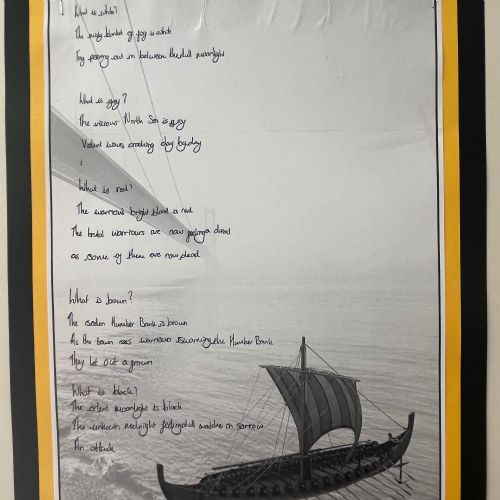 What is white?
The misty blanket of fog is white
Fog peering out in between the dull moonlight
What is grey?
The vicious North Sea is grey
Violent waves crashing day by day
What is red?
The warriors bright blood is red
The brutal warriours are now feeling a dread
as some of them are now dead
What is brown?
The soden Humber Bank is brown
As the town sees warriours swarming the Humber Bank
They let out a grown
What is black?
The silent moonlight is black
The unkown midnight feeling dull watches in sorrow
An attack